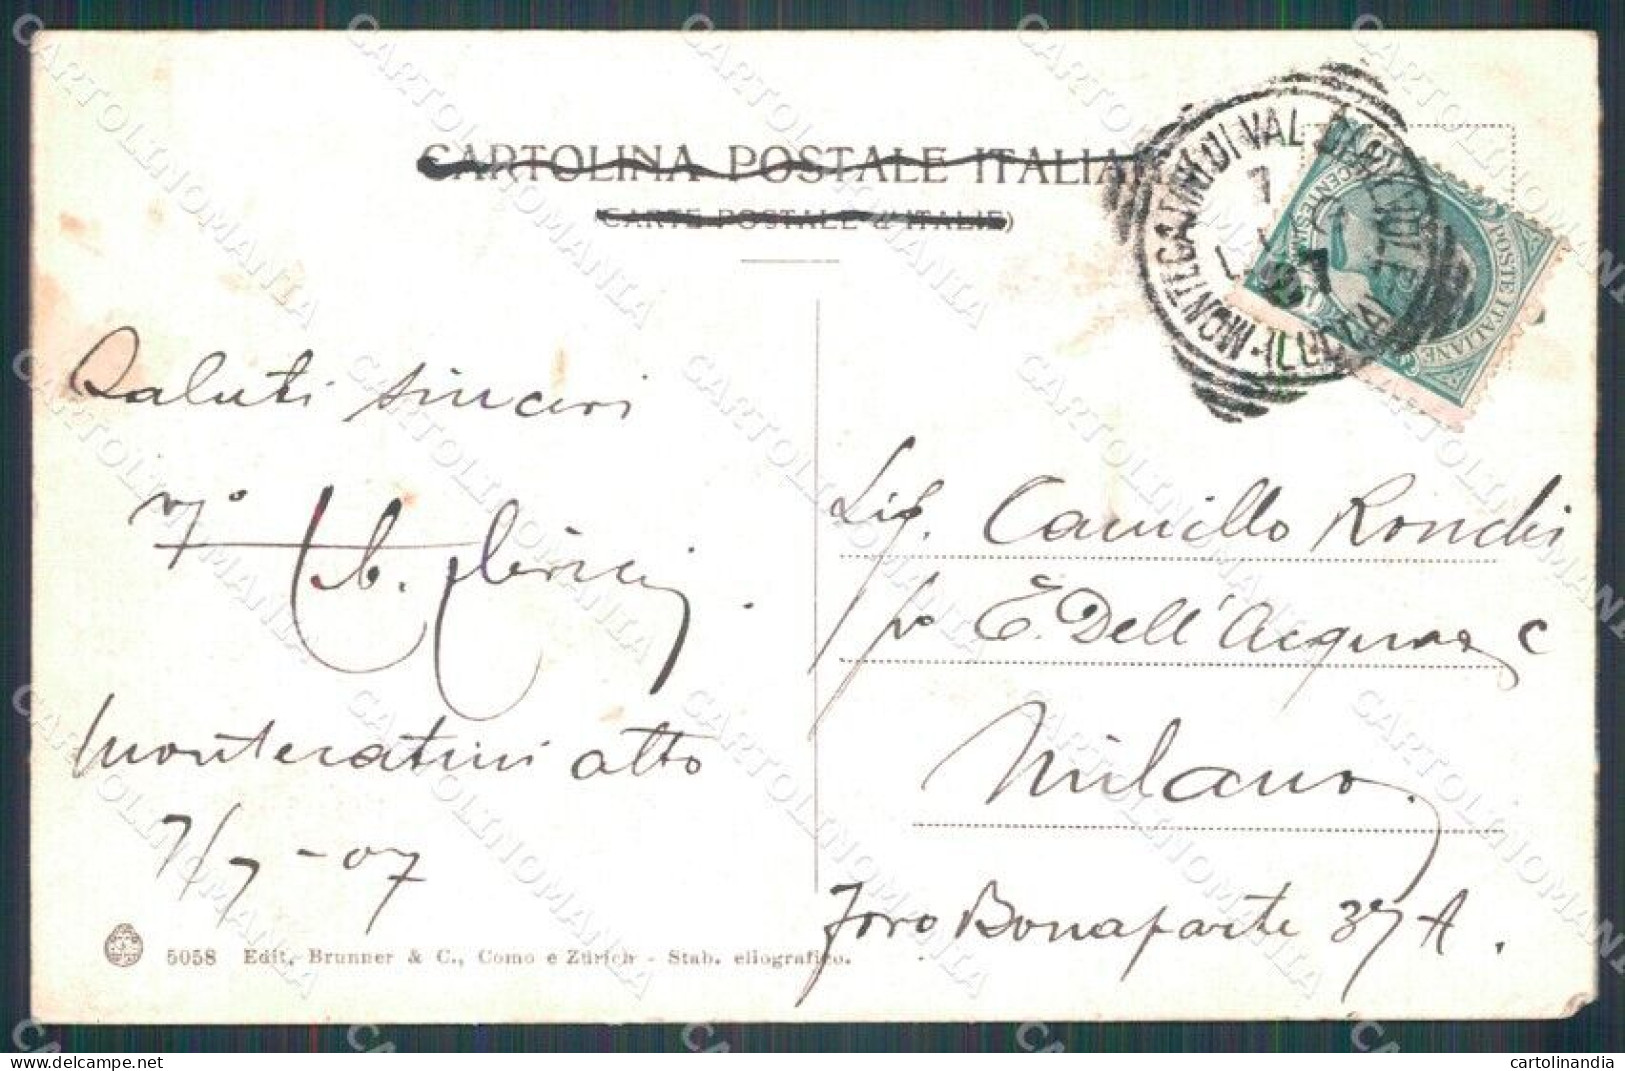 CARTOLINA POSTALE ITALIA
(CARTE POSTALE d'ITALIE)
MONTECATINI DI VAL DI NIEVOLE
7
07
POSTE ITALIANE
CENTESIMI
Saluti sinceri
Montecatini alto
7/7-07
Sig. Camillo Ronchi
po E. Dell'Acqua e C
Milano
Foro Bonaparte 37 A.
5058 Edit. Brunner & C., Como e Zürich - Stab. eliografico.
CARTOLINOMANIA
https://www.delcampe.net
cartolinandia